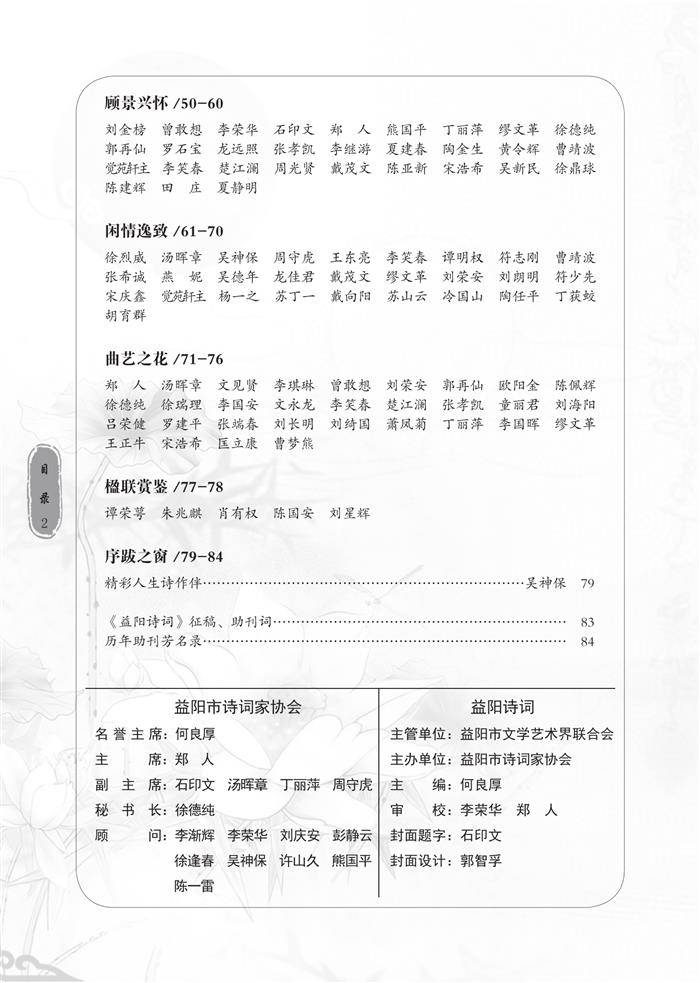 顾景兴怀 /50-60
刘金榜 曾敢想 李荣华 石印文 郑 人 熊国平 丁丽萍 缪文革 徐德纯
郭再仙 罗石宝 龙远照 张孝凯 李继游 夏建春 陶金生 黄令辉 曹靖波
觉苑轩主 李笑春 楚江澜 周光贤 戴茂文 陈亚新 宋浩希 吴新民 徐鼎球
陈建辉 田 庄 夏静明
闲情逸致 /61-70
徐烈威 汤晖章 吴神保 周守虎 王东亮 李笑春 谭明权 符志刚 曹靖波
张希诚 燕 妮 吴德年 龙佳君 戴茂文 缪文革 刘荣安 刘朗明 符少先
宋庆鑫 觉苑轩主 杨一之 苏丁一 戴向阳 苏山云 冷国山 陶任平 丁获蛟
胡育群
曲艺之花 /71-76
郑 人 汤晖章 文见贤 李琪琳 曾敢想 刘荣安 郭再仙 欧阳金 陈佩辉
徐德纯 徐瑞理 李国安 文永龙 李笑春 楚江澜 张孝凯 童丽君 刘海阳
吕荣健 罗建平 张端春 刘长明 刘绮国 萧凤菊 丁丽萍 李国晖 缪文革
王正牛 宋浩希 匡立康 曹梦熊
楹联赏鉴 /77-78
谭荣萼 朱兆麒 肖有权 陈国安 刘星辉
序跋之窗 /79-84
精彩人生诗作伴……………………………………………………………吴神保 79
《益阳诗词》征稿、助刊词……………………………………………………… 83
历年助刊芳名录…………………………………………………………………… 84
目录
2
益阳市诗词家协会
名誉主席：何良厚
主 席：郑 人
副 主 席：石印文 汤晖章 丁丽萍 周守虎
秘 书 长：徐德纯
顾 问：李渐辉 李荣华 刘庆安 彭静云
徐逢春 吴神保 许山久 熊国平
陈一雷
益阳诗词
主管单位：益阳市文学艺术界联合会
主办单位：益阳市诗词家协会
主 编：何良厚
审 校：李荣华 郑 人
封面题字：石印文
封面设计：郭智孚